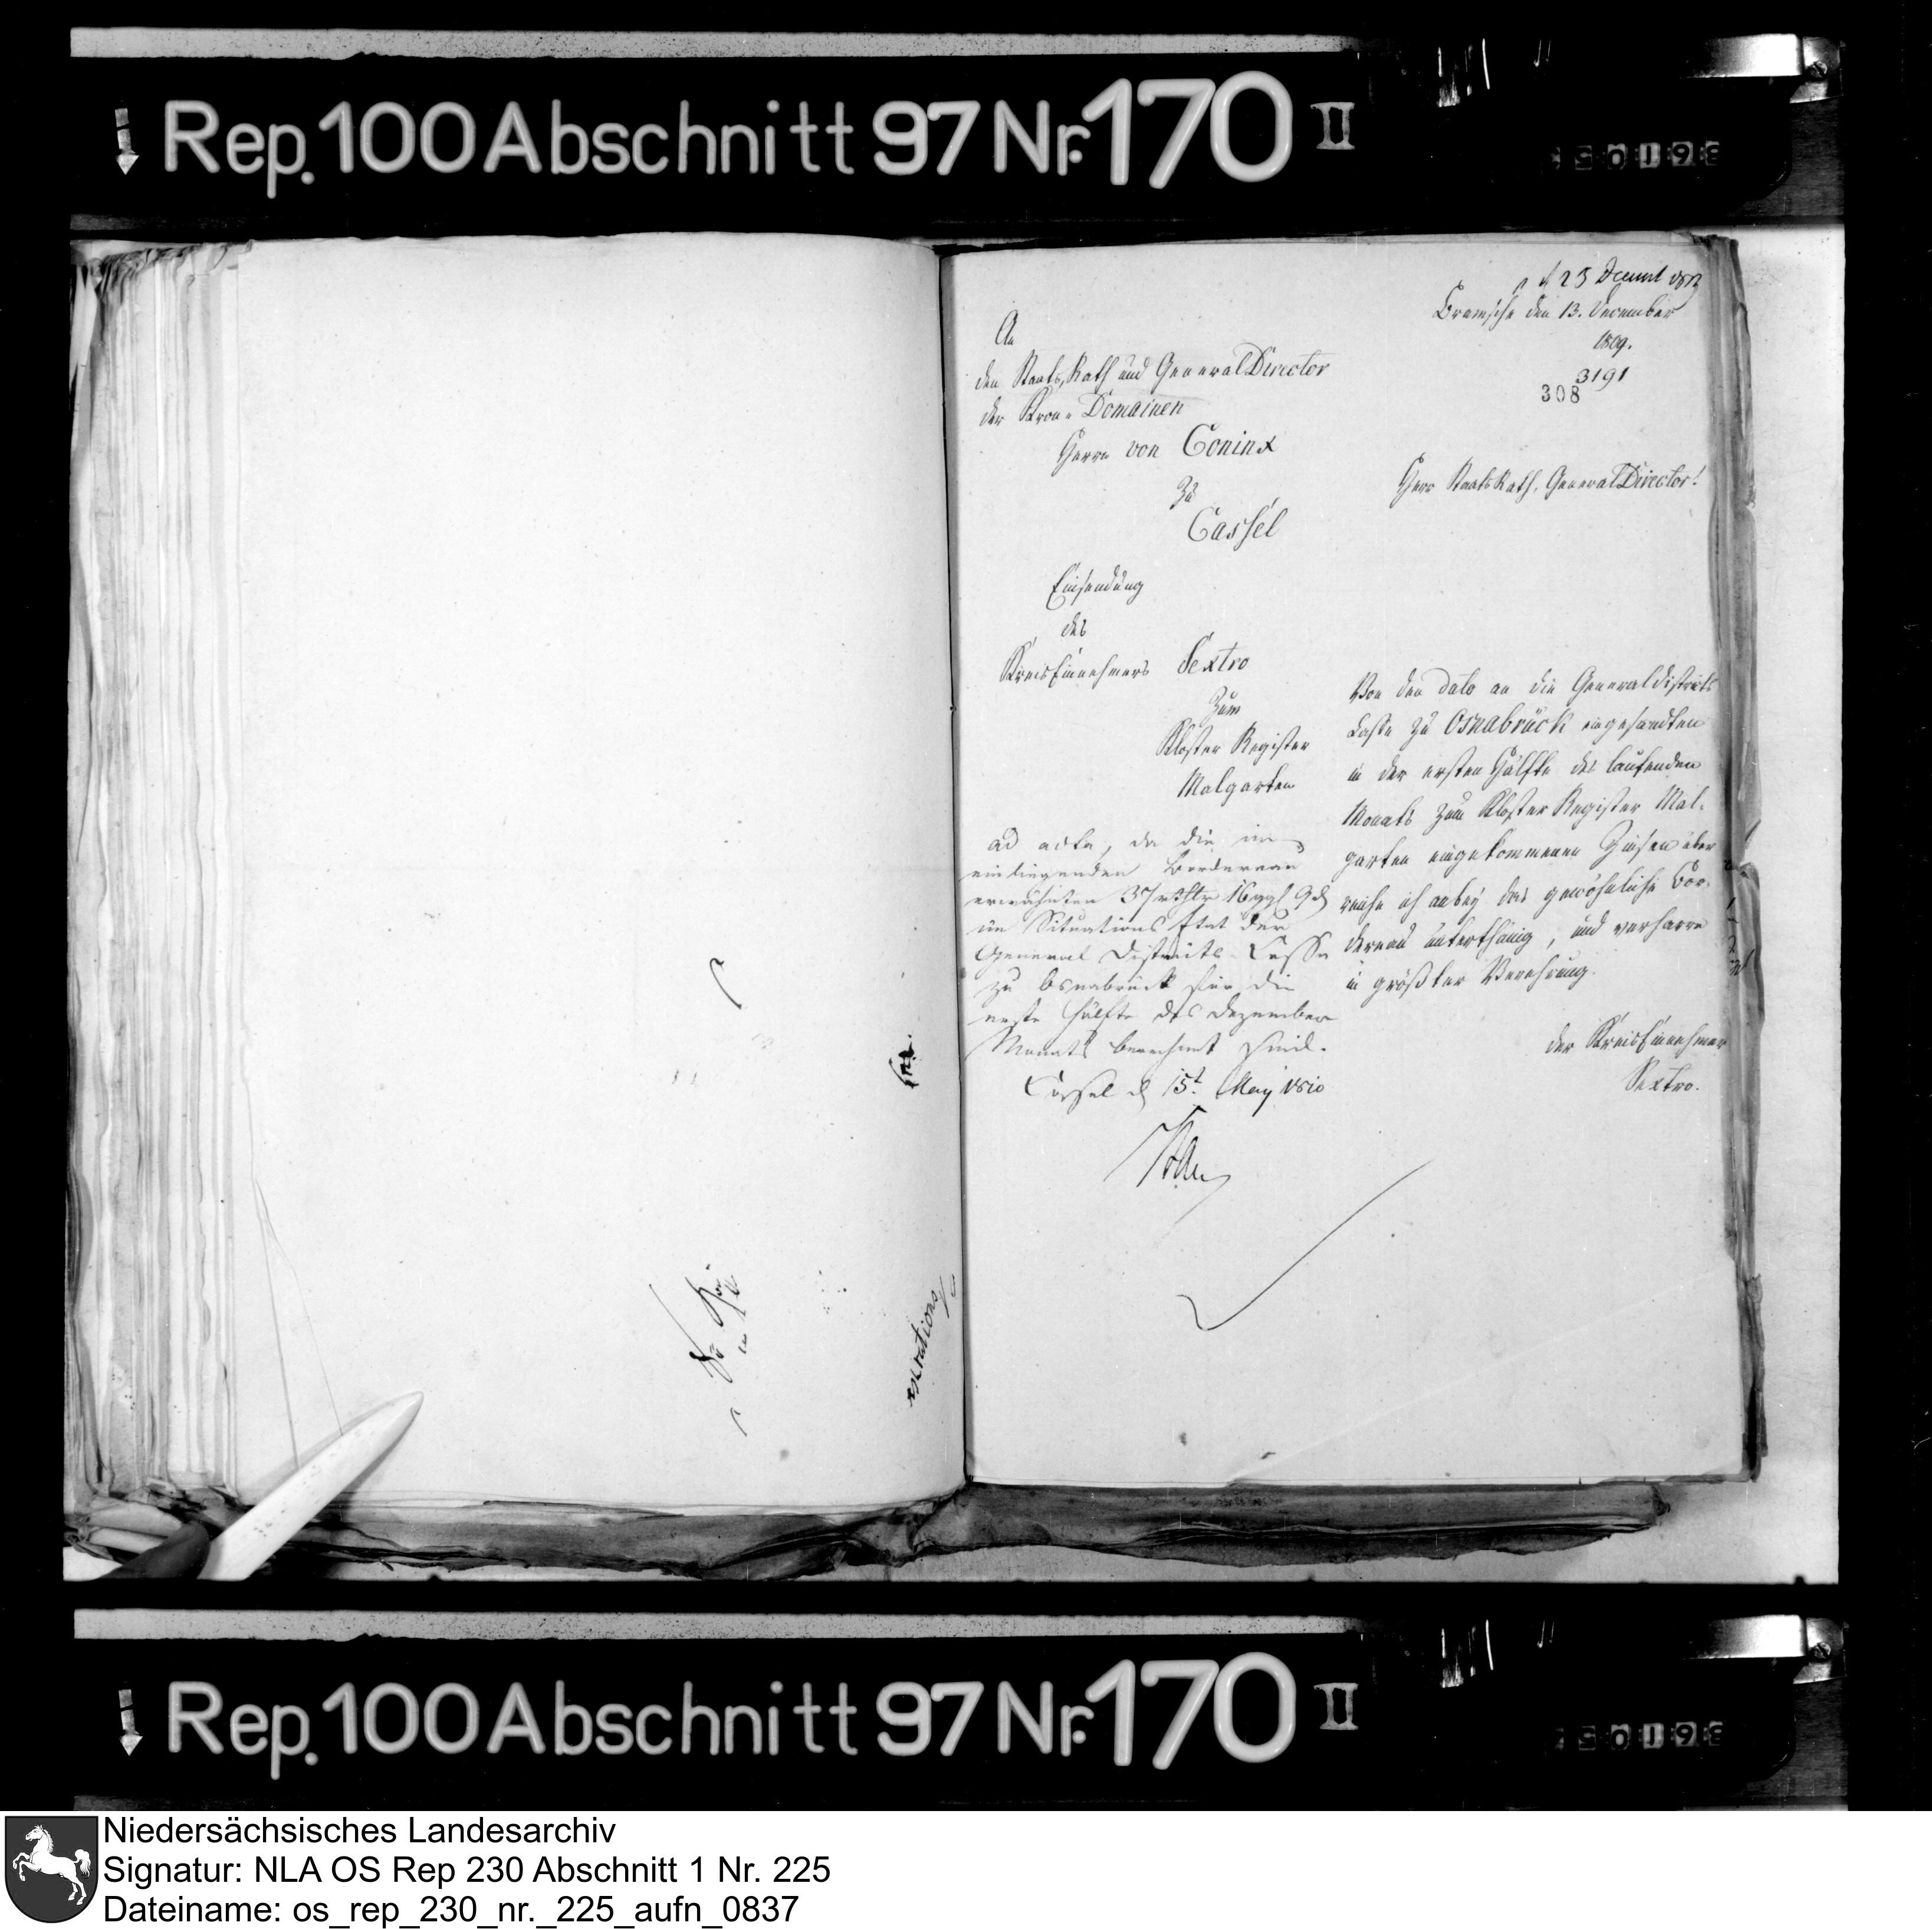 Rep. 100 Abschnitt 97 Nr. 170 II
23 Decembr
Bramsche den 13. December
1809.
3191
308
An
den Staats Rath und General Director
der Kron-Domainen
Herrn von Coninx
Zu
Cassel
Herr Staats Rath, General Director!
Einsendung
des
Kreis Einnehmers Sextro
Zum
Kloster Register
Malgarten
Von den dato an die General districts
Casse zu Osnabrück eingesandten
in der ersten Hälfte des laufenden
Monats zum Kloster Register Mal-
garten eingekommenen Zinsen über
reiche ich anbey das gewöhnliche Bor-
dereau unterthänig, und verharre
in größter Verehrung.
der Kreis Einnehmer
Sextro.
ad acta, da die im
einliegenden Bordereau
erwähnten 37 rthlr 16 ggl 9 d
im Situations Etat der
General Districts-Casse
zu Osnabrück für die
erste Hälfte des Dezember
Monats berechnet sind.
Cassel d 15t. May 1810
Rep. 100 Abschnitt 97 Nr. 170 II
Niedersächsisches Landesarchiv
Signatur: NLA OS Rep 230 Abschnitt 1 Nr. 225
Dateiname: os_rep_230_nr._225_aufn_0837